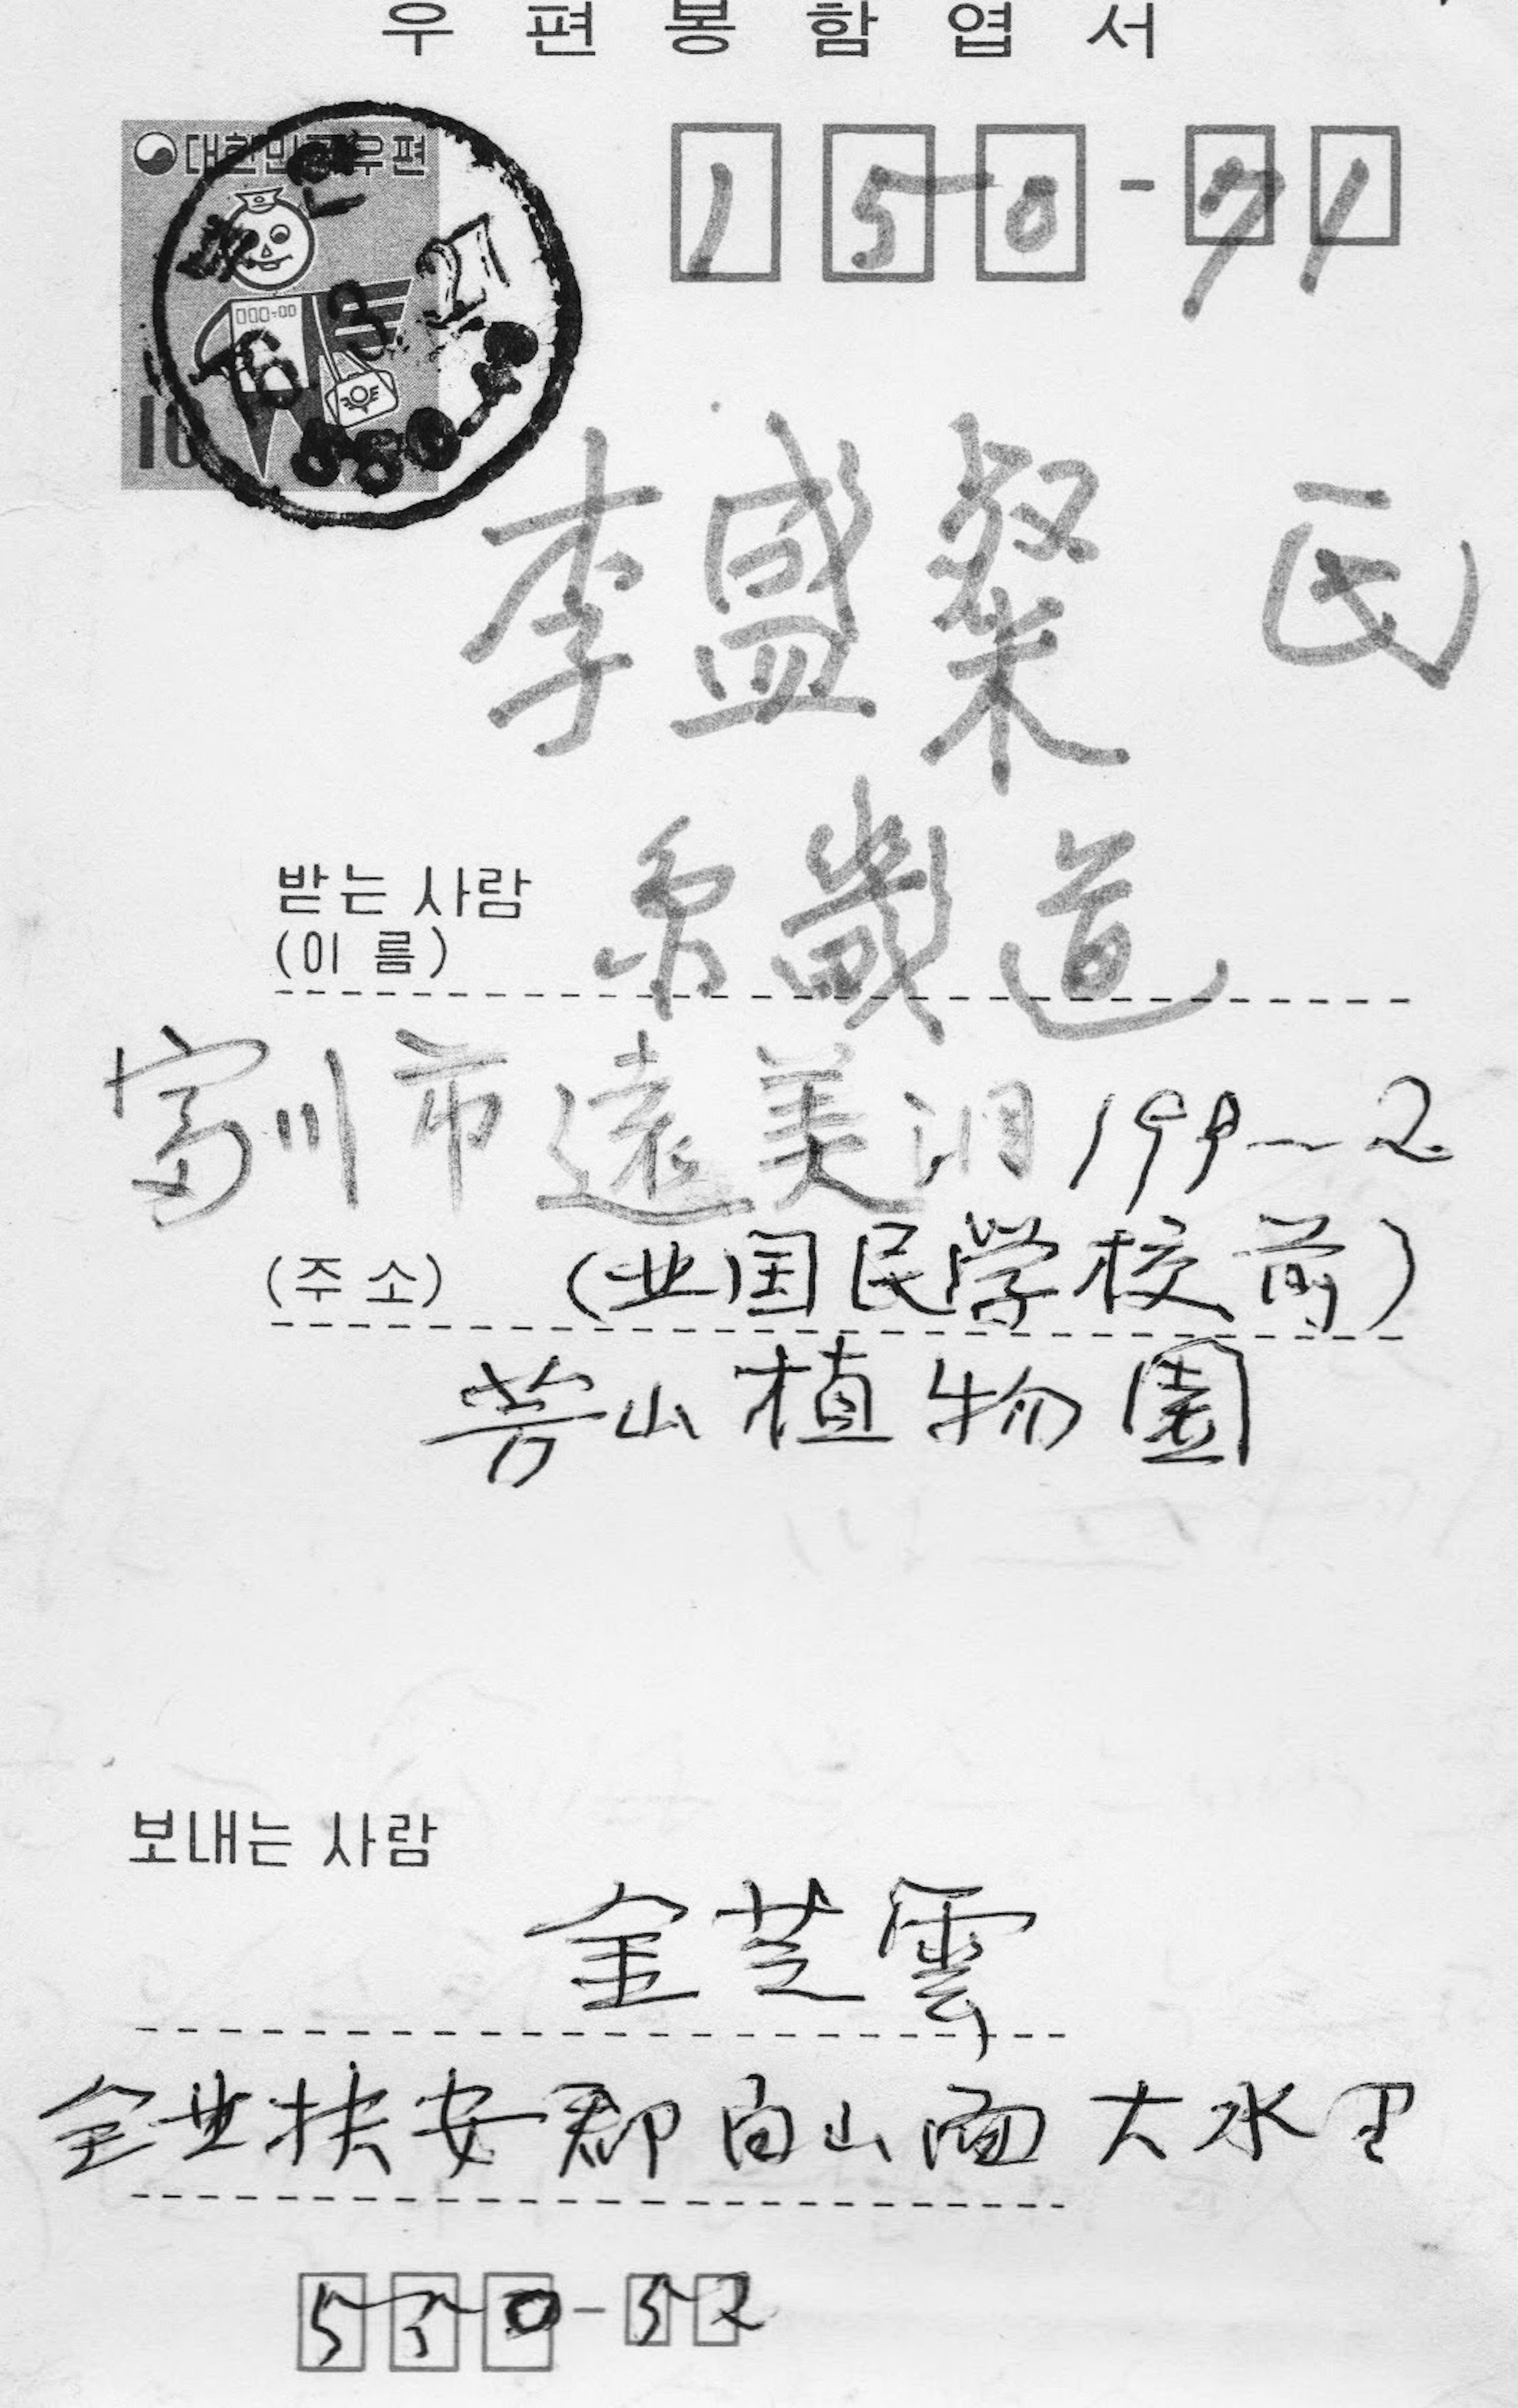 우편봉함엽서
대한민국우편
000-00
10
76.3.27
150-71
李盛粲 氏
京畿道
받는 사람
(이름)
富川市遠美洞 199-2
(주소) (北国民学校前)
芳山植物園
보내는 사람
金芝雲
全北扶安郡白山面大水里
550-32